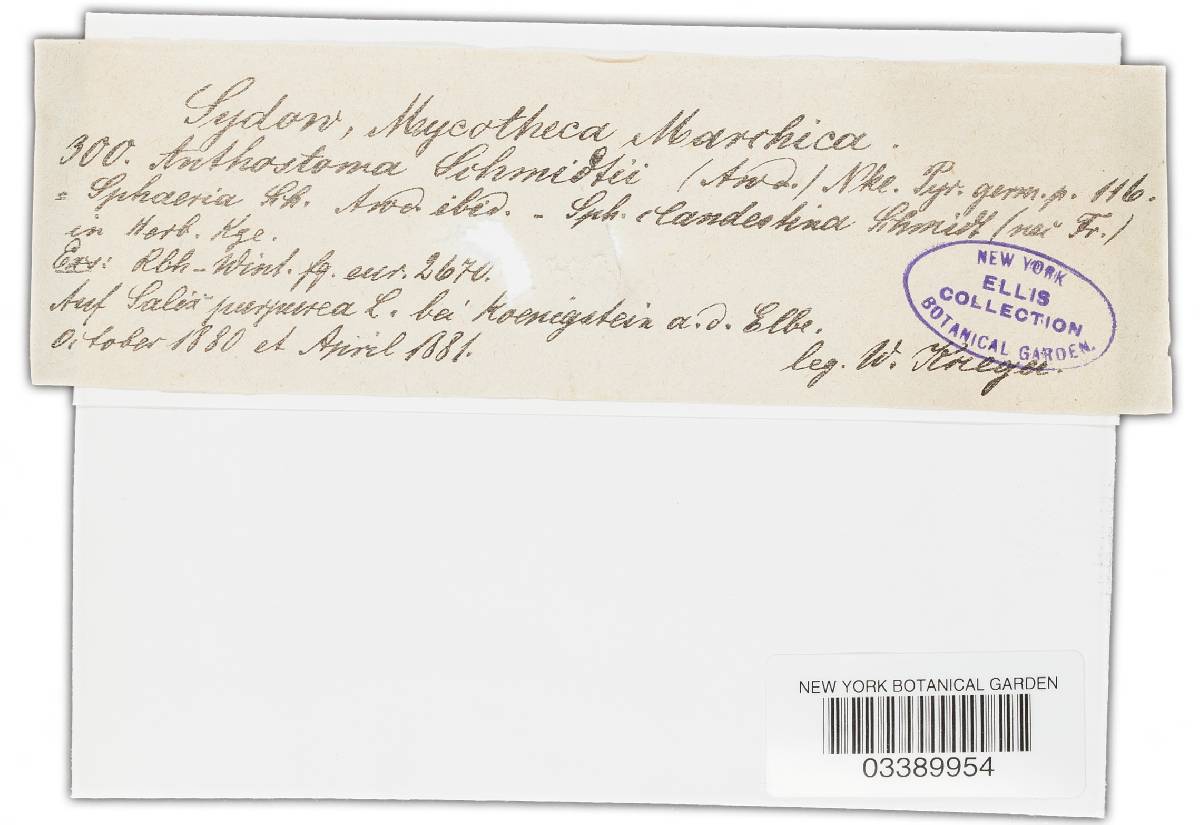 Sydow, Mycotheca Marchica.
300. Anthostoma Schmidtii (Awd.) Nke. Pyr. germ. p. 116.
= Sphaeria Awd. ibid. - Sph. clandestina Schmidt (nec Fr.)
in Herb. Kze.
Exs: Rbh-Wint. fg. eur. 2670.
Auf Salix purpurea L. bei Koenigstein a. d. Elbe.
October 1880 et April 1881.
leg. W. Krieger.
NEW YORK
ELLIS
COLLECTION
BOTANICAL GARDEN.
NEW YORK BOTANICAL GARDEN
03389954